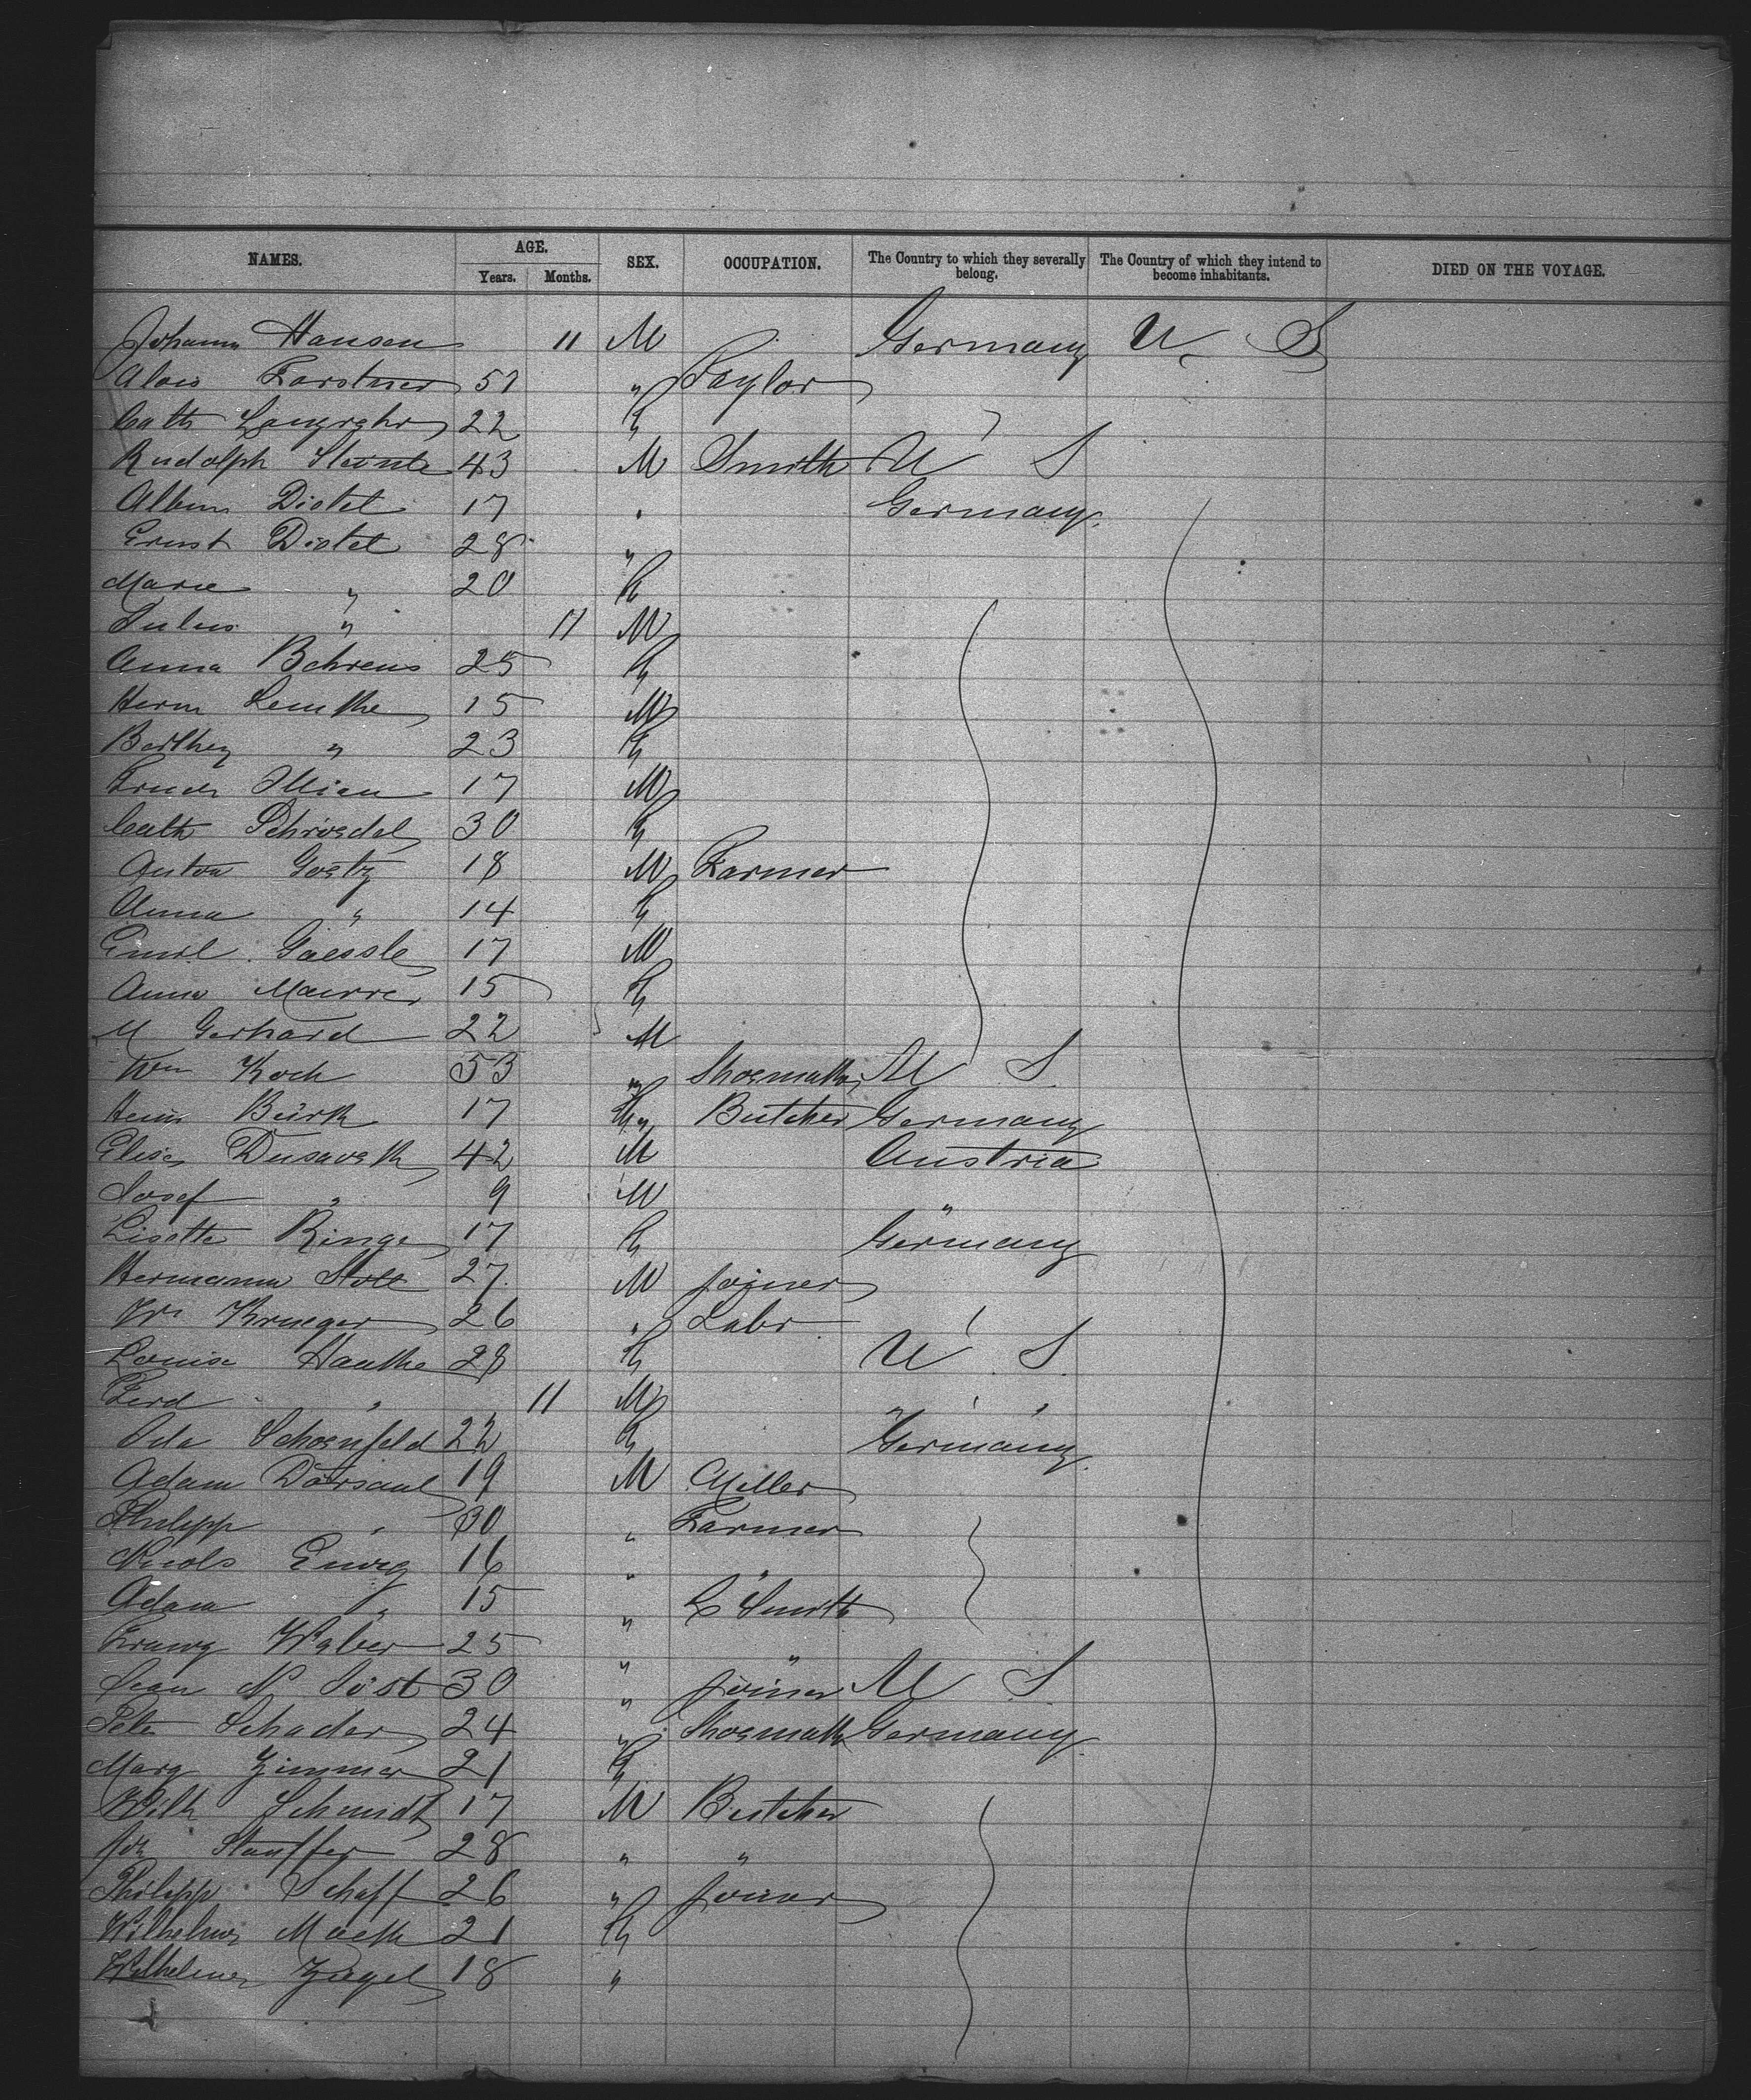 NAMES. AGE. SEX. OCCUPATION. The Country to which they severally belong. The Country of which they intend to become inhabitants. DIED ON THE VOYAGE.
Years. Months.
Johann Hansen 11 M Germany U S
Alois Forstner 51 " Taylor
Cath 22 F
Rudolph 43 M Smith U S
Albin Distel 17 " Germany
Ernst Distel 28 "
Marie " 20 F
Julius " 11 M
Anna Behrens 25 F
Herm Lemke 15 M
Bertha " 23 F
17 M
Cath Schroedel 30 F
Anton Goetz 18 M Farmer
Anna " 14 F
Emil Gaessle 17 M
Anna Maurer 15 F
M Gerhard 22 M
Wm Koch 53 " Shoemaker U S
Heinr Bürk 17 " Butcher Germany
Elise 42 M Austria
Josef " 9 M "
Lisette Ringe 17 F Germany
Hermann 27 M Joiner
Wm Krueger 26 " Labr
Louise Haathe 28 F U S
Ferd " 11 M " "
Ida Schoenfeld 22 F Germany
Adam 19 M Miller
Philipp " 30 " Farmer
Nicols Ewig 16 " "
Adam " 15 " Smith
Franz Weber 25 " "
Jean N Jost 30 " Joiner U S
Peter Schader 24 " Shoemaker Germany
Marg Zimmer 21 F
Wilh Schmidt 17 M Butcher
Joh Stauffer 28 " "
Philipp Schaff 26 " Joiner
Wilhelmine 21 F
Wilhelmine Ziegel 18 "